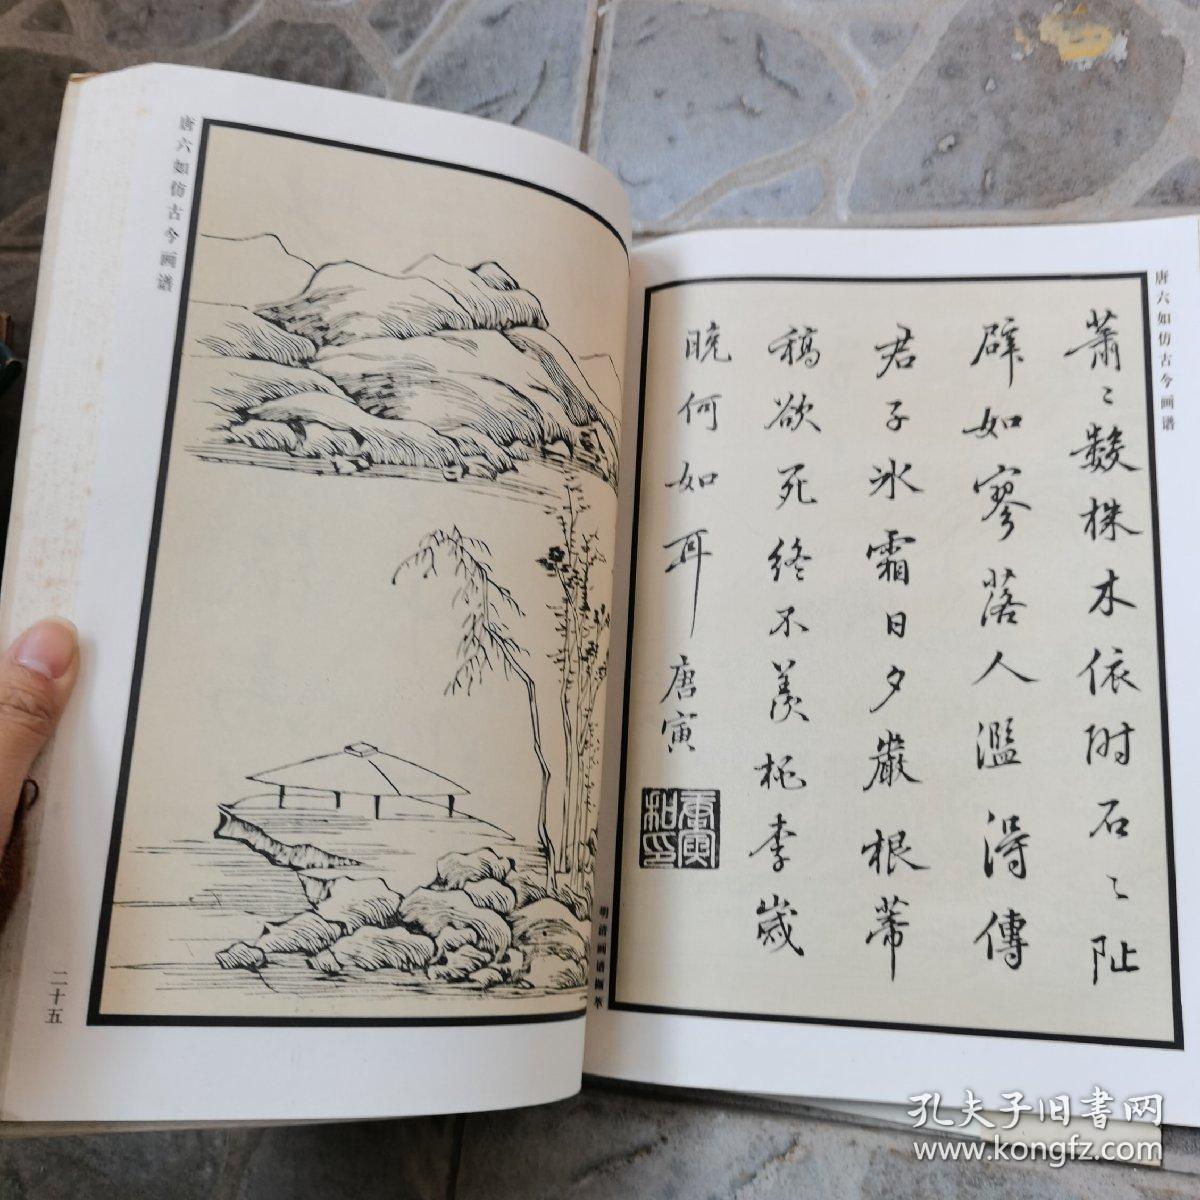 唐六如仿古今画谱
二十五
明清画谱撷萃
唐六如仿古今画谱
蕭〻數株木依附石〻阯
辟如寥落人濫得傳
君子氷霜日夕巖根蒂
稿欲死終不羨桃李歲
晚何如耳 唐寅
孔夫子旧书网
www.kongfz.com